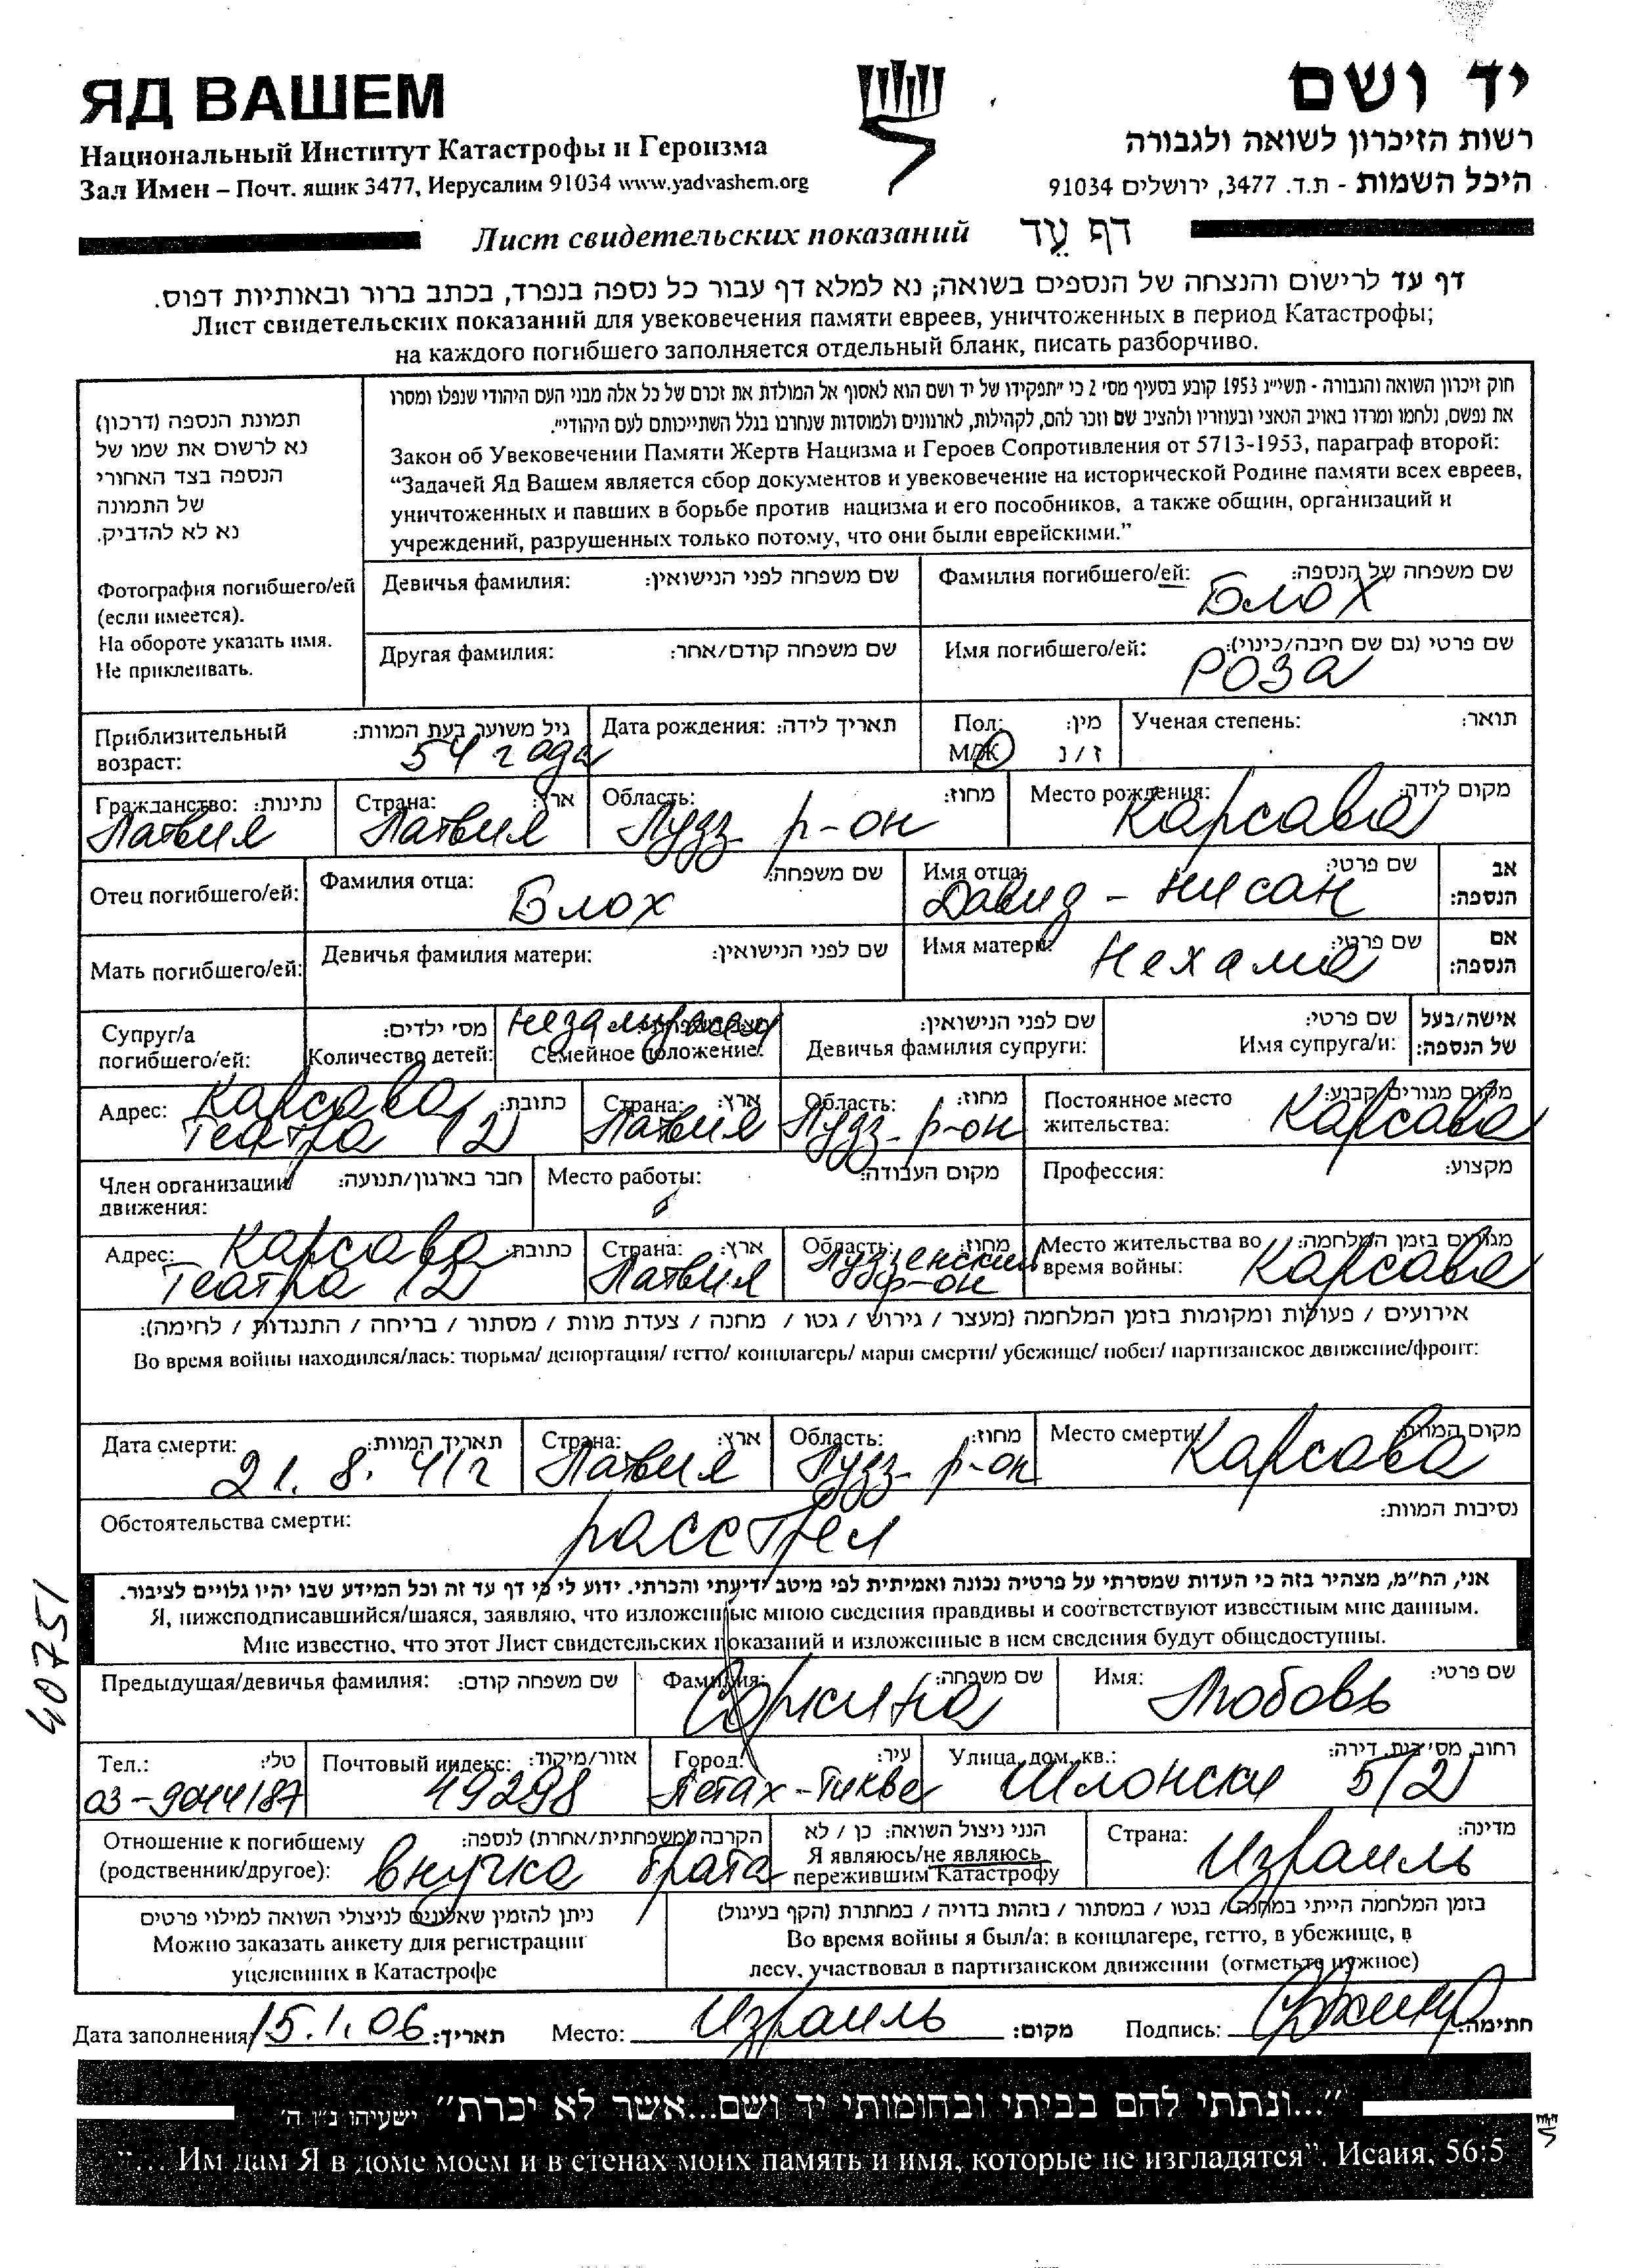 ЯД ВАШЕМ
Национальный Институт Катастрофы и Героизма
Зал Имен – Почт. ящик 3477, Иерусалим 91034 www.yadvashem.org
יד ושם
רשות הזיכרון לשואה ולגבורה
היכל השמות - ת.ד. 3477, ירושלים 91034
Лист свидетельских показаний דף עֵד
דף עד לרישום והנצחה של הנספים בשואה; נא למלא דף עבור כל נספה בנפרד, בכתב ברור ובאותיות דפוס.
Лист свидетельских показаний для увековечения памяти евреев, уничтоженных в период Катастрофы;
на каждого погибшего заполняется отдельный бланк, писать разборчиво.
תמונת הנספה (דרכון)
נא לרשום את שמו של
הנספה בצד האחורי
של התמונה
נא לא להדביק.
Фотография погибшего/ей
(если имеется).
На обороте указать имя.
Не приклеивать.
חוק זיכרון השואה והגבורה - תשי"ג 1953 קובע בסעיף מס' 2 כי "תפקידו של יד ושם הוא לאסוף אל המולדת את זכרם של כל אלה מבני העם היהודי שנפלו ומסרו
את נפשם, נלחמו ומרדו באויב הנאצי ובעוזריו ולהציב שם וזכר להם, לקהילות, לארגונים ולמוסדות שנחרבו בגלל השתייכותם לעם היהודי".
Закон об Увековечении Памяти Жертв Нацизма и Героев Сопротивления от 5713-1953, параграф второй:
“Задачей Яд Вашем является сбор документов и увековечение на исторической Родине памяти всех евреев,
уничтоженных и павших в борьбе против нацизма и его пособников, а также общин, организаций и
учреждений, разрушенных только потому, что они были еврейскими.”
Девичья фамилия: שם משפחה לפני הנישואין: Фамилия погибшего/ей: שם משפחה של הנספה:
Блох
Другая фамилия: שם משפחה קודם/אחר: Имя погибшего/ей: שם פרטי (גם שם חיבה/כינוי):
Роза
Приблизительный возраст: גיל משוער בעת המוות: Дата рождения: תאריך לידה: Пол: מין: Ученая степень: תואר:
54 года М/Ж ז / נ
Гражданство: נתינות: Страна: ארץ: Область: מחוז: Место рождения: מקום לידה:
Латвия Латвия Лудз. р-он Карсава
Отец погибшего/ей: Фамилия отца: שם משפחה: Имя отца: שם פרטי: אב הנספה:
Блох Давид - Нисан
Мать погибшего/ей: Девичья фамилия матери: שם לפני הנישואין: Имя матери: שם פרטי: אם הנספה:
Нехама
Супруг/а погибшего/ей: מס' ילדים: Количество детей: Семейное положение: שם לפני הנישואין: Девичья фамилия супруги: שם פרטי: Имя супруга/и: אישה/בעל של הנספה:
незамужем
Адрес: כתובת: Страна: ארץ: Область: מחוז: Постоянное место жительства: מקום מגורים קבוע:
Карсава Латвия Лудз. р-он Карсава
Театра 12
Член организации/ движения: חבר בארגון/תנועה: Место работы: מקום העבודה: Профессия: מקצוע:
Адрес: כתובת: Страна: ארץ: Область: מחוז: Место жительства во время войны: מגורים בזמן המלחמה:
Карсава Латвия Лудзенский р-он Карсава
Театра 12
אירועים / פעולות ומקומות בזמן המלחמה (מעצר / גירוש / גטו / מחנה / צעדת מוות / מסתור / בריחה / התנגדות / לחימה):
Во время войны находился/лась: тюрьма/ депортация/ гетто/ концлагерь/ марш смерти/ убежище/ побег/ партизанское движение/фронт:
Дата смерти: תאריך המוות: Страна: ארץ: Область: מחוז: Место смерти: מקום המוות:
21. 8. 41г Латвия Лудз. р-он Карсава
Обстоятельства смерти: נסיבות המוות:
расстрел
אני, הח"מ, מצהיר בזה כי העדות שמסרתי על פרטיה נכונה ואמיתית לפי מיטב ידיעתי והכרתי. ידוע לי כי דף עד זה וכל המידע שבו יהיו גלויים לציבור.
Я, нижеподписавшийся/шаяся, заявляю, что изложенные мною сведения правдивы и соответствуют известным мне данным.
Мне известно, что этот Лист свидетельских показаний и изложенные в нем сведения будут общедоступны.
40751
Предыдущая/девичья фамилия: שם משפחה קודם: Фамилия: שם משפחה: Имя: שם פרטי:
Любовь
Тел.: טל': Почтовый индекс: אזור/מיקוד: Город: עיר: Улица, дом, кв.: רחוב, מס' בית, דירה:
03-9044187 49298 Петах-Тиква Шлонски 5/21
Отношение к погибшему (родственник/другое): הקרבה (משפחתית/אחרת) לנספה: הנני ניצול השואה: כן / לא Страна: מדינה:
Я являюсь/не являюсь
пережившим Катастрофу
внучка брата Израиль
ניתן להזמין שאלונים לניצולי השואה למילוי פרטים
Можно заказать анкету для регистрации
уцелевших в Катастрофе
בזמן המלחמה הייתי במחנה / בגטו / במסתור / בזהות בדויה / במחתרת (הקף בעיגול)
Во время войны я был/а: в концлагере, гетто, в убежище, в
лесу, участвовал в партизанском движении (отметьте нужное)
Дата заполнения 15.1.06 תאריך: Место: Израиль מקום: Подпись: חתימה:
"...ונתתי להם בביתי ובחומותי יד ושם...אשר לא יכרת" ישעיהו נ"ו ה'
“... Им дам Я в доме моем и в стенах моих память и имя, которые не изгладятся”. Исаия, 56:5